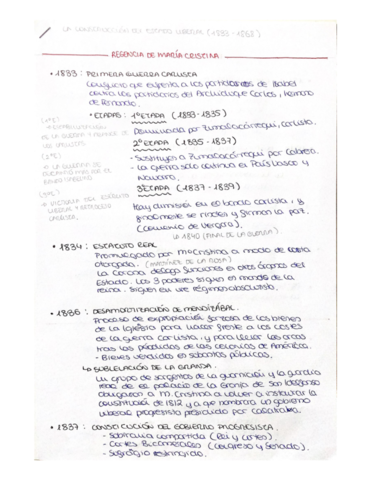 LA CONSTRUCCIÓN DEL ESTADO LIBERAL (1833 - 1868)
REGENCIA DE MARÍA CRISTINA
• 1833: PRIMERA GUERRA CARLISTA
Conflicto que enfrenta a los partidarios de Isabel
contra los partidarios del Archiduque Carlos, hermano
de Fernando.
• ETAPAS: 1ª ETAPA (1833-1835)
Dominada por Zumalacárregui, carlista.
2ª ETAPA (1835-1837)
- Sustituyen a Zumalacárregui por Cabrera.
- La guerra solo continua el País Vasco y
Navarra.
3ª ETAPA (1837-1839)
Hay división en el bando carlista, y
finalmente se rinden y firman la paz.
(Convenio de Vergara),
LA 1840 (FINAL DE LA GUERRA)
(1ªE)
(2ªE)
(3ªE)
→ VICTORIA DEL EJÉRCITO
LIBERAL Y RETROCESO
CARLISTA.
• 1834: ESTATUTO REAL
Promulgado por Mª Cristina a modo de carta
otorgada. (MARTÍNEZ DE LA ROSA)
La Corona delega funciones en otros órganos del
Estado. Los 3 poderes siguen en manos de la
reina. Siguen en un régimen absolutista.
• 1836: DESAMORTIZACIÓN DE MENDIZÁBAL.
Proceso de expropiación forzosa de los bienes
de la Iglesia para hacer frente a los costes
de la guerra carlista, y para llenar las arcas
tras las pérdidas de las colonias de América.
- Bienes vendidos en subastas públicas.
↳ SUBLEVACIÓN DE LA GRANJA.
Un grupo de sargentos de la guarnición y la guardia
real de el palacio de la Granja de San Ildefonso
obligaron a M. Cristina a volver a instaurar la
constitución de 1812 y a que nombrara un gobierno
liberal progresista presidido por Calatrava.
• 1837: CONSTITUCIÓN DEL GOBIERNO PROGRESISTA
- Soberanía compartida (Rey y Cortes).
- Cortes Bicamerales (Congreso y Senado).
- Sufragio restringido.